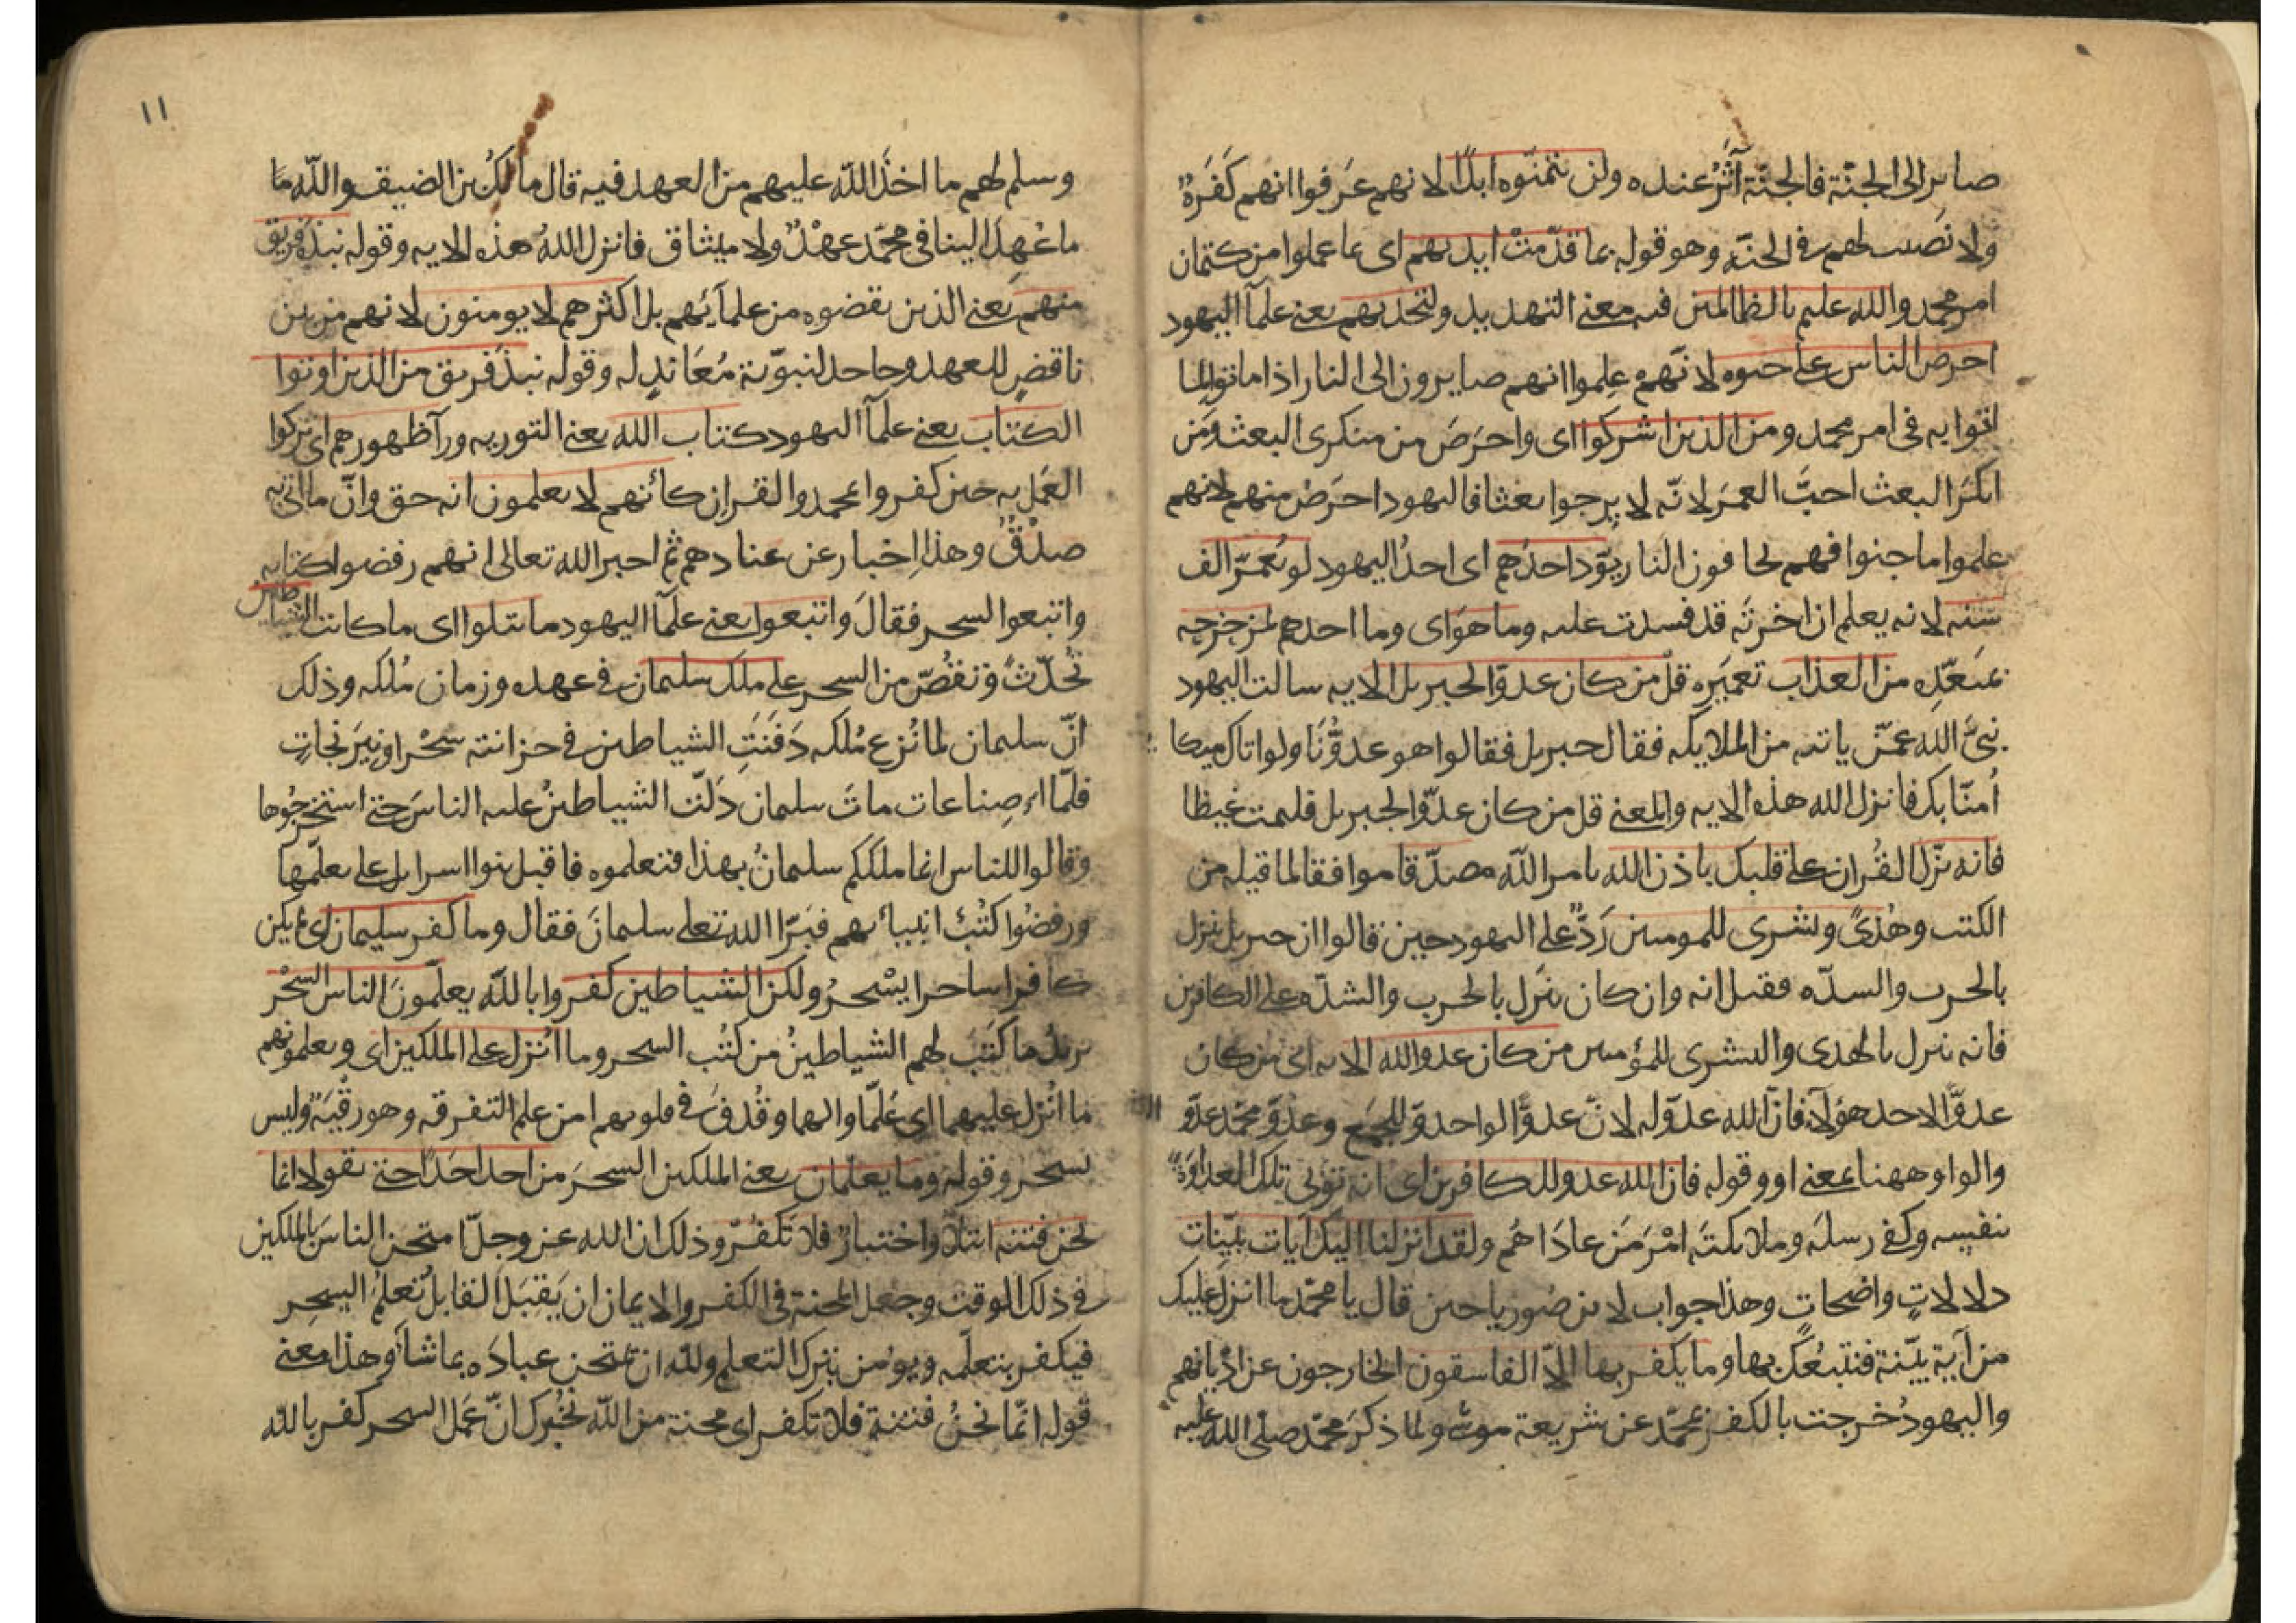 صاير الى الجنّة فالجنّة آثَرُ عنده ولن يتمنّوه ابدًا لانهم عَرَفوا انهم كَفَرَةٌ
ولا نصيب لهم في الجنّة وهو قوله بما قدّمتْ ايديهم اى بما عملوا من كتمان
امر محمد والله عليم بالظالمين فيه معنى التهديد ولتجدنهم يعنى علمآ اليهود
احرص الناس على حيوه لانّهم علموا انهم صايرون الى النار اذا ماتوا لما
اتوا به فى امر محمد ومن الذين اشركوا اى واحرَصَ من منكرى البعث ومَن
انكرَ البعث احبَّ العمرَ لانّه لا يرجوا بعثا فاليهود احرَصُ منهم لانهم
علموا ما جنوا فهم يخافون النار يوّد احدُهم اى احدُ اليهود لو يُعمّر الف
سنه لانه يعلم ان اخرتَه قد فسدت عليه وما هوَ اى وما احدهم بمزحزحه
بمبعّدِه من العذاب تعميَره قلْ من كان عدوّا لجبريل الايه سالت اليهود
نبىَّ الله عمّن ياتيه من الملايكه فقال جبريل فقالوا هو عدوُّنَا ولو اتاك ميكا
اُمنّا بك فانزل الله هذه الايه والمعنى قل من كان عدوّا لجبريل فليمت غيظا
فانه نزّل القُران على قلبك باذن الله بامر الله مصدّقا موافقا لما قبله من
الكتب وهُدىً وبشرى للمومنين رَدٌّ على اليهود حين قالوا ان جبريل ينزل
بالحرب والشدّه فقيل انه وان كان ينزل بالحرب والشدّه على الكافرين
فانه ينزل بالهدى والبشرى للمؤمنين من كان عدوا لله الايه اى من كان
عدوًّا لاحد هؤلآء فانّ الله عدوّ له لانّ عدوَّ الواحد عدوّ للجميع وعدوّ محمّد عدوّ
والواو ههنا بمعنى او وقوله فان الله عدو للكافرين اى انه تولى تلك العداوَةَ
بنفسه وكفى رسلَه وملايكتَه امْرَ مَن عادَاهُم ولقد انزلنا اليك آيات بيّنات
دلالاتٍ واضحاتٍ وهذا جواب لابن صُوريا حين قال يا محمّد ما انزل عليك
من آية بيّنة فنتبعُكَ بها وما يكفر بها الاّ الفاسقون الخارجون عن اديانهم
واليهودُ خرجت بالكفر بمحمّد عن شريعة موسى ولما ذكرَ محمّد صلى الله عليه
١١
وسلم لهم ما اخذ الله عليهم من العهد فيه قال مالكُ بن الضيف والله ما
ما عُهِدَ الينا فى محمّد عهْدٌ ولا ميثاق فانزل اللهُ هذه الايه وقوله نبذه فريق
منهم يعنى الذين نقضوه من علمآئهم بل اكثرهم لا يومنون لانهم من بين
ناقضٍ للعهد وجاحد لنبوّته مُعَاندٍ له وقوله نبذ فريق من الذين اوتوا
الكتاب يعنى علمآ اليهود كتاب الله يعنى التوريه ورآ ظهورهم اى تركوا
العَمل به حين كفروا بمحمد والقران كأنهم لا يعلمون انه حق وانّ ما اتى به
صِدْقٌ وهذا إخبار عن عنادهم ثم اخبر الله تعالى انهم رفضوا كتابه
واتبعوا السحر فقالَ واتبعوا يعنى علمآ اليهود ما تتلوا اى ما كانت الشياطين
تُحدّثُ وتقُصّ من السحر على ملك سليمان فى عهده وزمان مُلكه وذلك
انّ سليمان لما نُزع مُلكه دَفنَتِ الشياطين فى خزانته سِحْرا ونِيرَنجاتٍ
فلمّا اء صِناعات ماتَ سليمان دَلّت الشياطينُ عليه الناسَ حتى استخرجُوها
وقالوا للناس انما ملككم سليمانُ بهذا فتعلموه فاقبل بنوا اسرايل على تعلّمها
ورفضُوا كتُبَ انبيائهم فبَرّا الله تعلى سليمانَ فقال وما كفر سليمان اى لم يكن
كافرا ساحرا يسْحرُ ولكن الشياطين كفروا بالله يعلّمونَ الناس السحْر
يريدُ ما كَتَبَ لهم الشياطينُ من كتُب السحر وما اُنزل على الملكين اى ويعلمونهم
ما اُنزل عليهما اى عُلّما والهما وقُذفَ فى قلوبهم امن علم التفرقه وهو رقْيَة وليس
بسحر وقوله وما يعلمان يعنى الملكين السحرَ من احد احَدًا حتى يقولا انما
نحن فتنه ابتلآ واختبارٌ فلا تكفُرْ وذلك ان الله عز وجلّ امتحن الناسَ بالملكين
فى ذلك الوقت وجعل المحنة فى الكفر والايمان ان يَقبَلَ القابلُ تعلّمُ السِحر
فيكفر بتعلّمه ويؤمن بترك التعلم ولله ان يمتحن عبادَه بما شآء وهذا معنى
قوله انّما نحنُ فتنة فلا تكفر اى محنة من الله نُخْبرك انّ عَمَل السحر كفر بالله